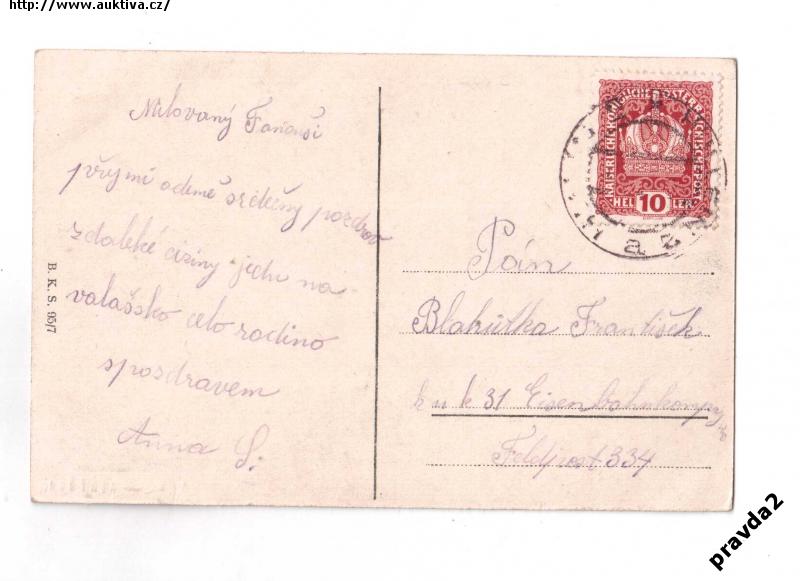 http://www.auktiva.cz/
Milovaný Fanouši
přijmi odemě srdečny pozdrav
zdaleké ciziny jedu na-
valašsko celo rodino
spozdravem
Anna S.
B. K. S. 95/7
KAISERLICHE KÖNIGLICHE ÖSTERREICHISCHE POST
HEL 10 LER
Pán
Blahútka František
k u k 31 Eisenbahnkompag
Feldpost 334
pravda2